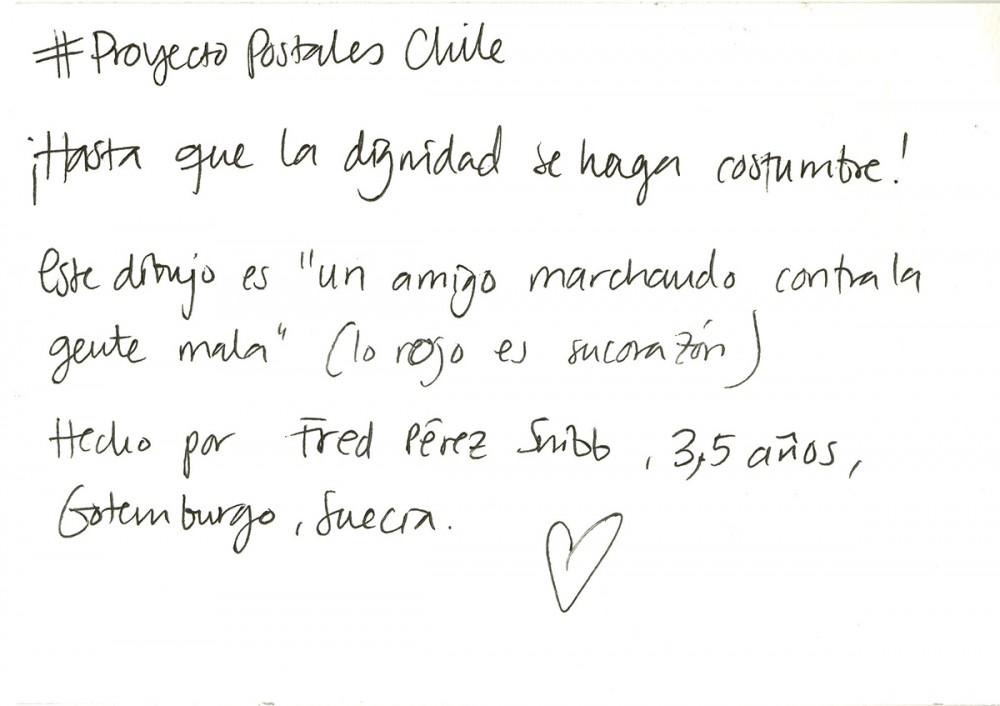 #Proyecto Postales Chile
¡Hasta que la dignidad se haga costumbre!
Este dibujo es "un amigo marchando contra la
gente mala" (lo rojo es su corazón)
Hecho por Fred Pérez Snibb, 3,5 años,
Gotemburgo, Suecia.